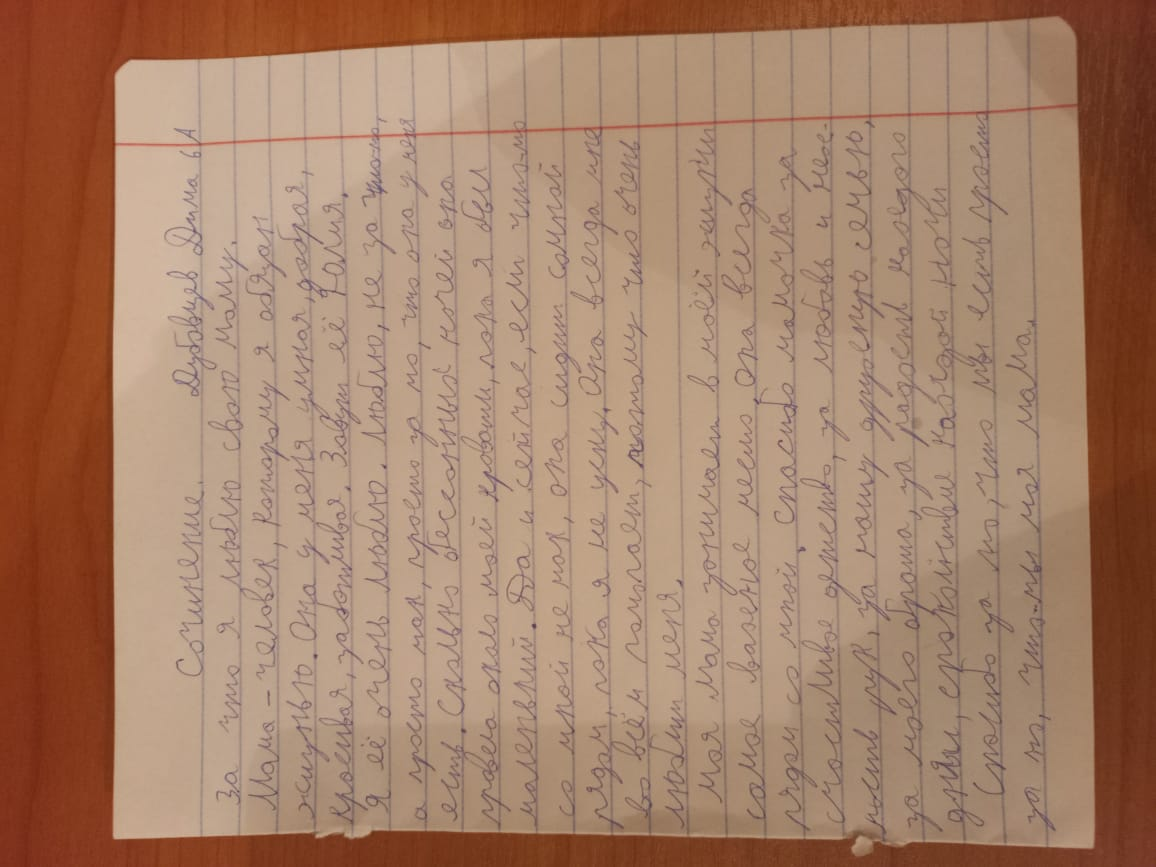 Сочинение. Дубовцев Дима 6А
За что я люблю свою маму.
Мама - человек, которому я обязан
жизнью. Она у меня умная, добрая,
красивая, заботливая. Зовут её Галия.
Я её очень люблю. Люблю, не за что-то,
а просто так, просто за то, что она у меня
есть. Сколько бессонных ночей она
провела около моей кровати, пока я был
маленький. Да и сейчас, если что-то
со мной не так, она сидит со мной
рядом, пока я не усну. Она всегда мне
во всём помогает, потому что очень
любит меня.
Моя мама занимает в моей жизни
самое важное место, она всегда
рядом со мной спасибо мамочка за
счастливое детство, за любовь и неж-
ность рук, за нашу дружную семью,
за моего брата, за радость каждого
дня, спокойствие каждой ночи
Спасибо за то, что ты есть просто
за то, что-ты моя мама.